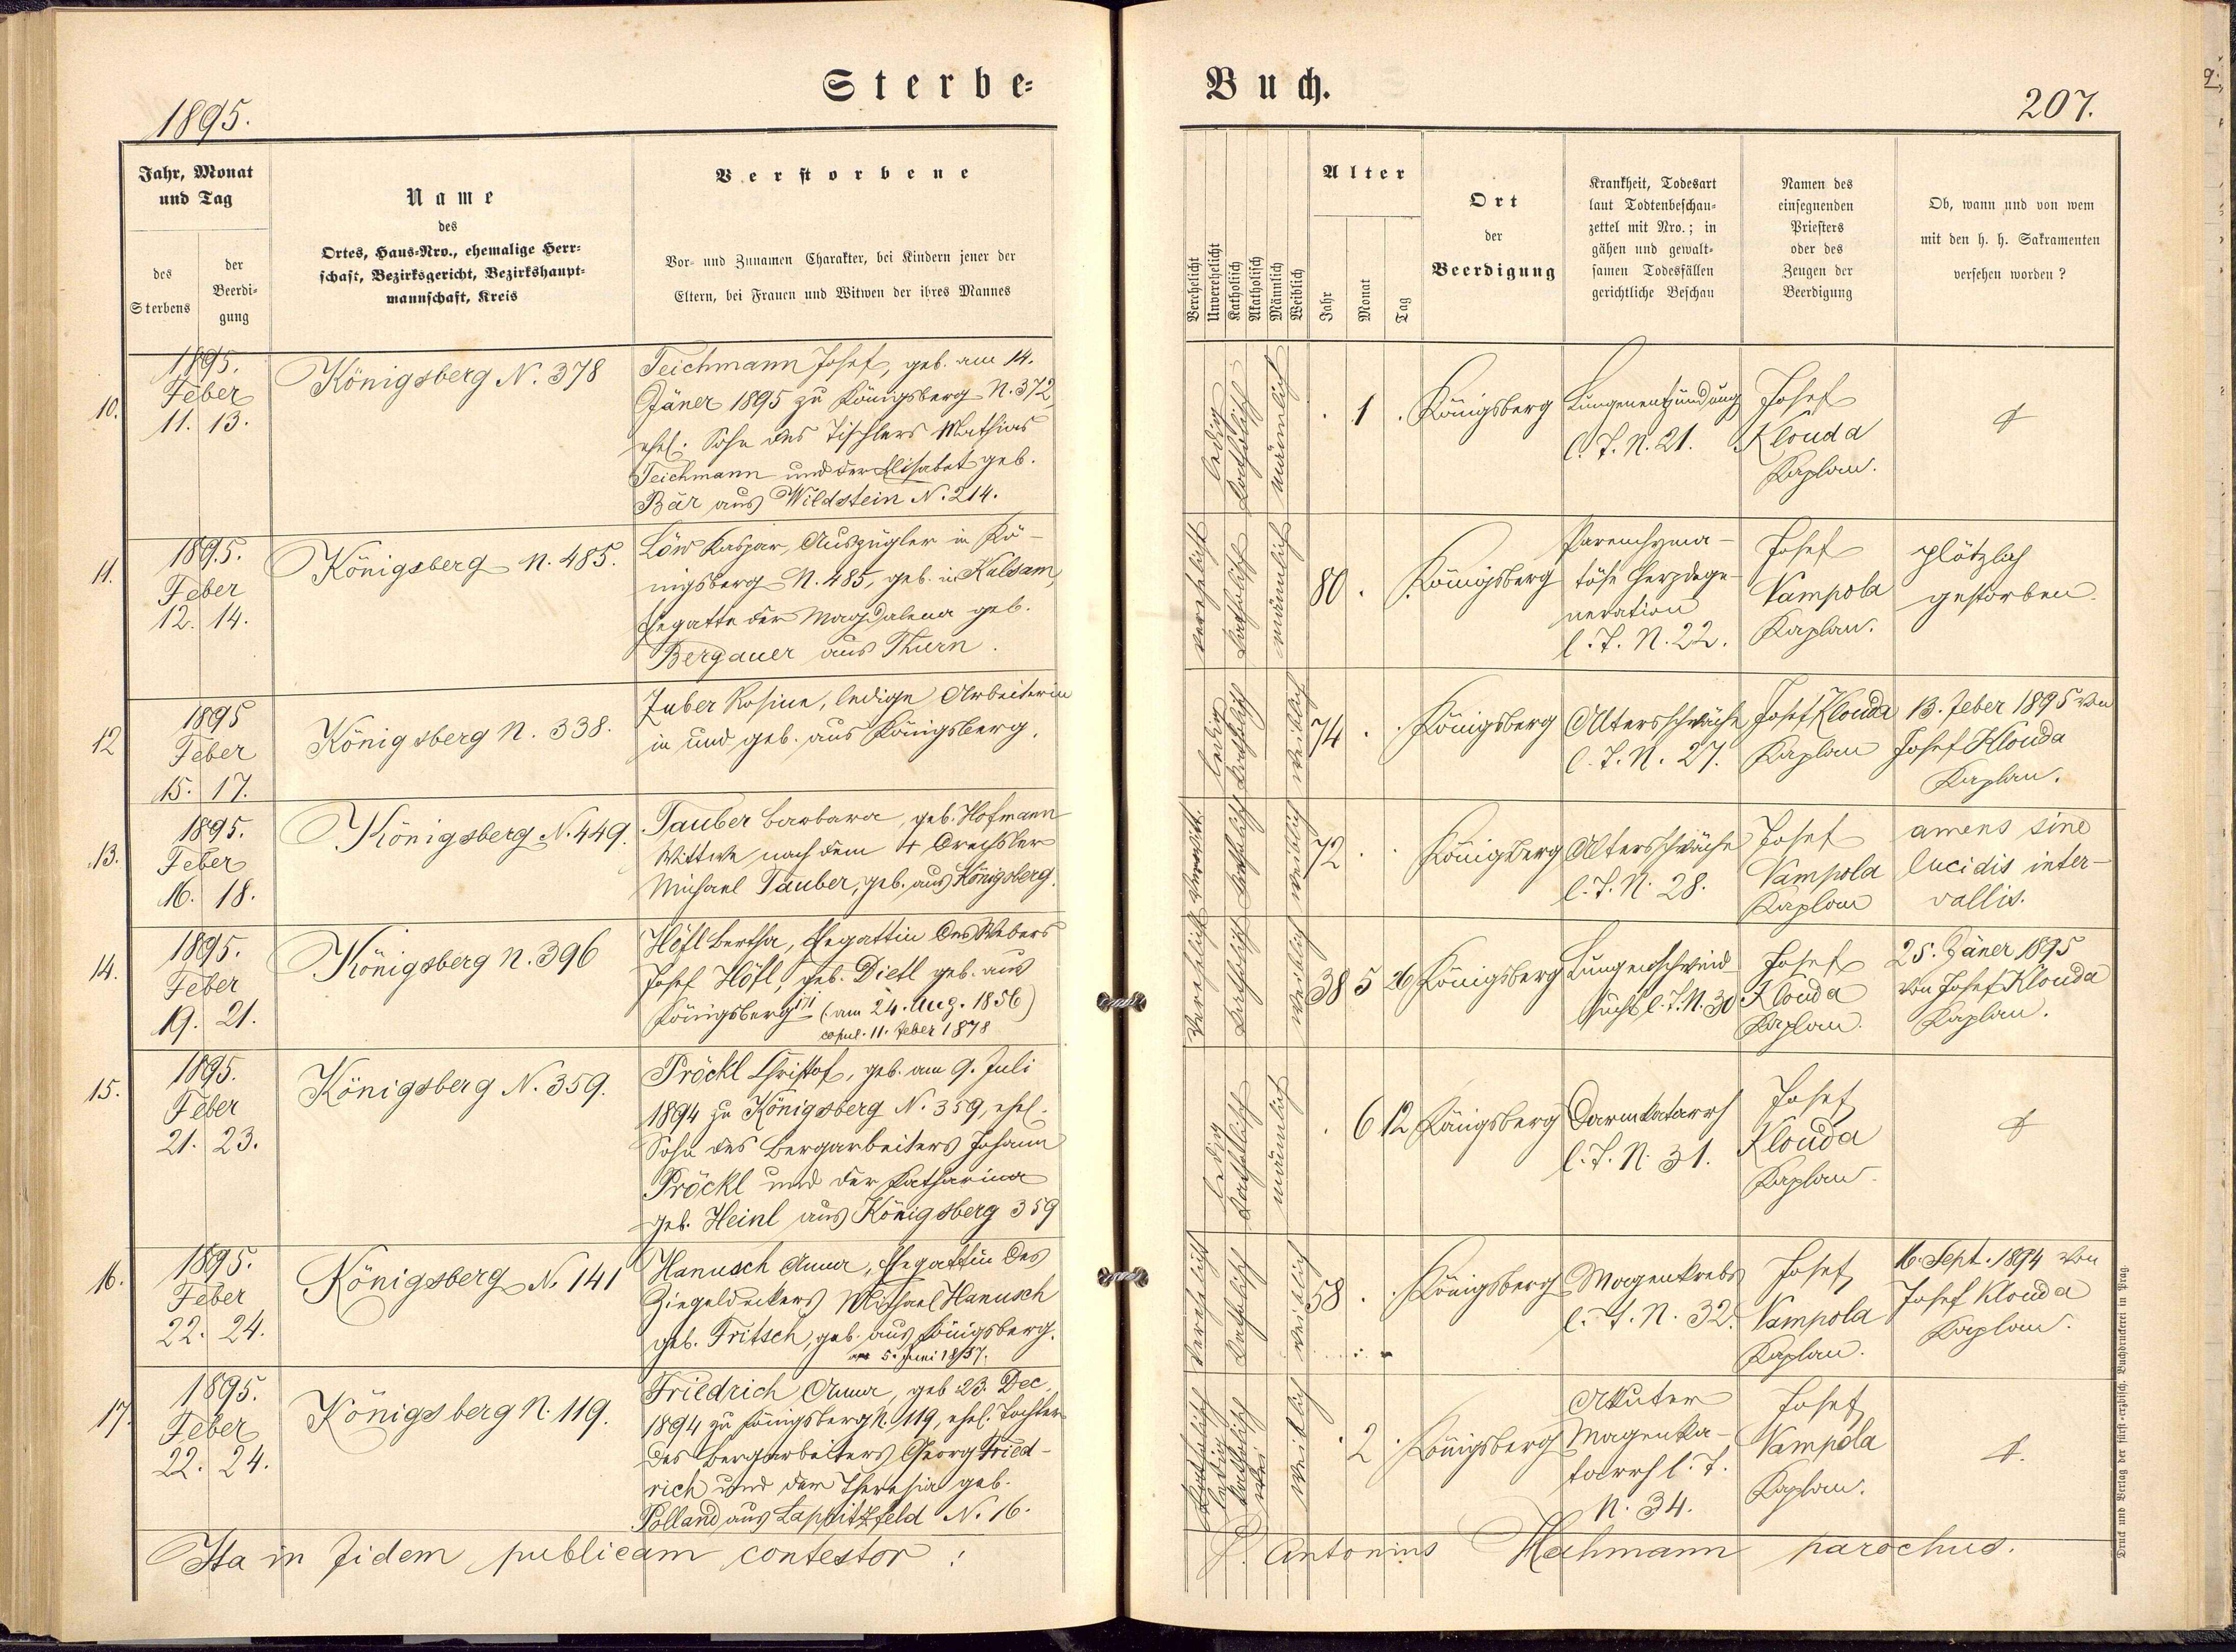 Sterbe-
Buch.
1895.
207.
Jahr, Monat
und Tag
des
Sterbens
der
Beerdi-
gung
Name
des
Ortes, Haus-Nro., ehemalige Herr-
schaft, Bezirksgericht, Bezirkshaupt-
mannschaft, Kreis
Verstorbene
Vor- und Zunamen Charakter, bei Kindern jener der
Eltern, bei Frauen und Witwen der ihres Mannes
Verehelicht
Unverehelicht
Katholisch
Akatholisch
Männlich
Weiblich
Alter
Jahr
Monat
Tag
Ort
der
Beerdigung
Krankheit, Todesart
laut Todtenbeschau-
zettel mit Nro.; in
gähen und gewalt-
samen Todesfällen
gerichtliche Beschau
Namen des
einsegnenden
Priesters
oder des
Zeugen der
Beerdigung
Ob, wann und von wem
mit den h. h. Sakramenten
versehen worden?
10.
1895.
Feber
11. 13.
Königsberg N. 378
Teichmann Josef, geb. am 14.
Jäner 1895 zu Königsberg N. 372,
ehel. Sohn des Tischlers Mathias
Teichmann und der Elisabet geb.
Bär aus Wildstein N. 214.
ledig
katholisch
männlich
. 1 .
Königsberg
Lungenentzündung
l. T. N. 21.
Josef
Klouda
Kaplan.
+
11.
1895.
Feber
12. 14.
Königsberg N. 485.
Löw Kaspar, Auszügler in Kö-
nigsberg N. 485, geb. in Kulsam,
Ehegatte der Magdalena geb.
Bergauer aus Thurn.
verehelicht
katholisch
männlich
80 . .
Königsberg
Parenchyma-
töse Herzdege-
neration
l. T. N. 22.
Josef
Vampola
Kaplan.
plötzlich
gestorben.
12
1895
Feber
15. 17.
Königsberg N. 338.
Zuber Rosina, ledige Arbeiterin
in und geb. aus Königsberg.
ledig
katholisch
weiblich
74 . .
Königsberg
Altersschwäche
l. T. N. 27.
Josef Klouda
Kaplan
13. Feber 1895 von
Josef Klouda
Kaplan.
13.
1895.
Feber
16. 18.
Königsberg N. 449.
Tauber Barbara, geb. Hofmann
Wittwe nach dem + Drechsler
Michael Tauber, geb. aus Königsberg.
verwitt.
katholisch
weiblich
72 . .
Königsberg
Altersschwäche
l. T. N. 28.
Josef
Vampola
Kaplan
amens sine
lucidis inter-
vallis.
14.
1895.
Feber
19. 21.
Königsberg N. 396
Höfl Bertha, Ehegattin des Webers
Josef Höfl, geb. Dietl geb. aus
Königsberg (am 24. Aug. 1856)
copul. 11. Feber 1878
verehelicht
katholisch
weiblich
38 5 26
Königsberg
Lungenschwind-
sucht l. T. N. 30
Josef
Klouda
Kaplan.
25. Jäner 1895
von Josef Klouda
Kaplan.
15.
1895.
Feber
21. 23.
Königsberg N. 359.
Pröckl Christof, geb. am 9. Juli
1894 zu Königsberg N. 359, ehel.
Sohn des Bergarbeiters Johann
Pröckl und der Katharina
geb. Heinl aus Königsberg 359
ledig
katholisch
männlich
. 6 12
Königsberg
Darmkatarrh
l. T. N. 31.
Josef
Klouda
Kaplan.
+
16.
1895.
Feber
22. 24.
Königsberg N. 141
Hanusch Anna, Ehegattin des
Ziegeldeckers Michael Hanusch
geb. Fritsch, geb. aus Königsberg.
5. Juni 1837.
verehelicht
katholisch
weiblich
58 . .
Königsberg
Magenkrebs
l. T. N. 32.
Josef
Vampola
Kaplan.
16. Sept. 1894 von
Josef Klouda
Kaplan.
17.
1895.
Feber
22. 24.
Königsberg N. 119.
Friedrich Anna, geb. 23. Dec.
1894 zu Königsberg N. 119, ehel. Tochter
des Bergarbeiters Georg Fried-
rich und der Theresia geb.
Polland aus Lappitzfeld N. 16.
ledig
katholisch
weiblich
. 2 .
Königsberg
Akuter
Magenka-
tarrh l. T.
N. 34.
Josef
Vampola
Kaplan.
+.
Ita in fidem publicam contestor:
P. Antonius Hahmann parochus.
Druck und Verlag der fürst-erzbisch. Buchdruckerei in Prag.